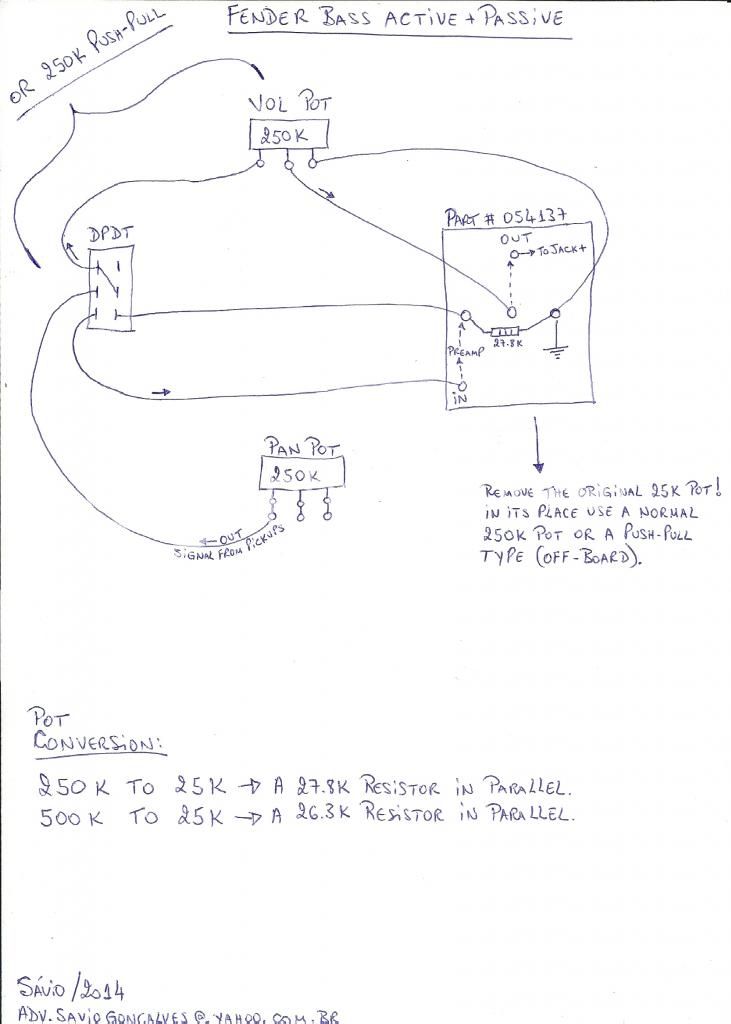 FENDER BASS ACTIVE + PASSIVE
OR 250K PUSH-PULL
VOL POT
250K
DPDT
PART # 054137
OUT
TO JACK+
27.8K
PREAMP
IN
PAN POT
250K
OUT
SIGNAL FROM PICKUPS
REMOVE THE ORIGINAL 25K POT!
IN ITS PLACE USE A NORMAL
250K POT OR A PUSH-PULL
TYPE (OFF-BOARD).
POT
CONVERSION:
250K TO 25K → A 27.8K RESISTOR IN PARALLEL.
500K TO 25K → A 26.3K RESISTOR IN PARALLEL.
SÁVIO/2014
ADV.SAVIOGONCALVES@YAHOO.COM.BR